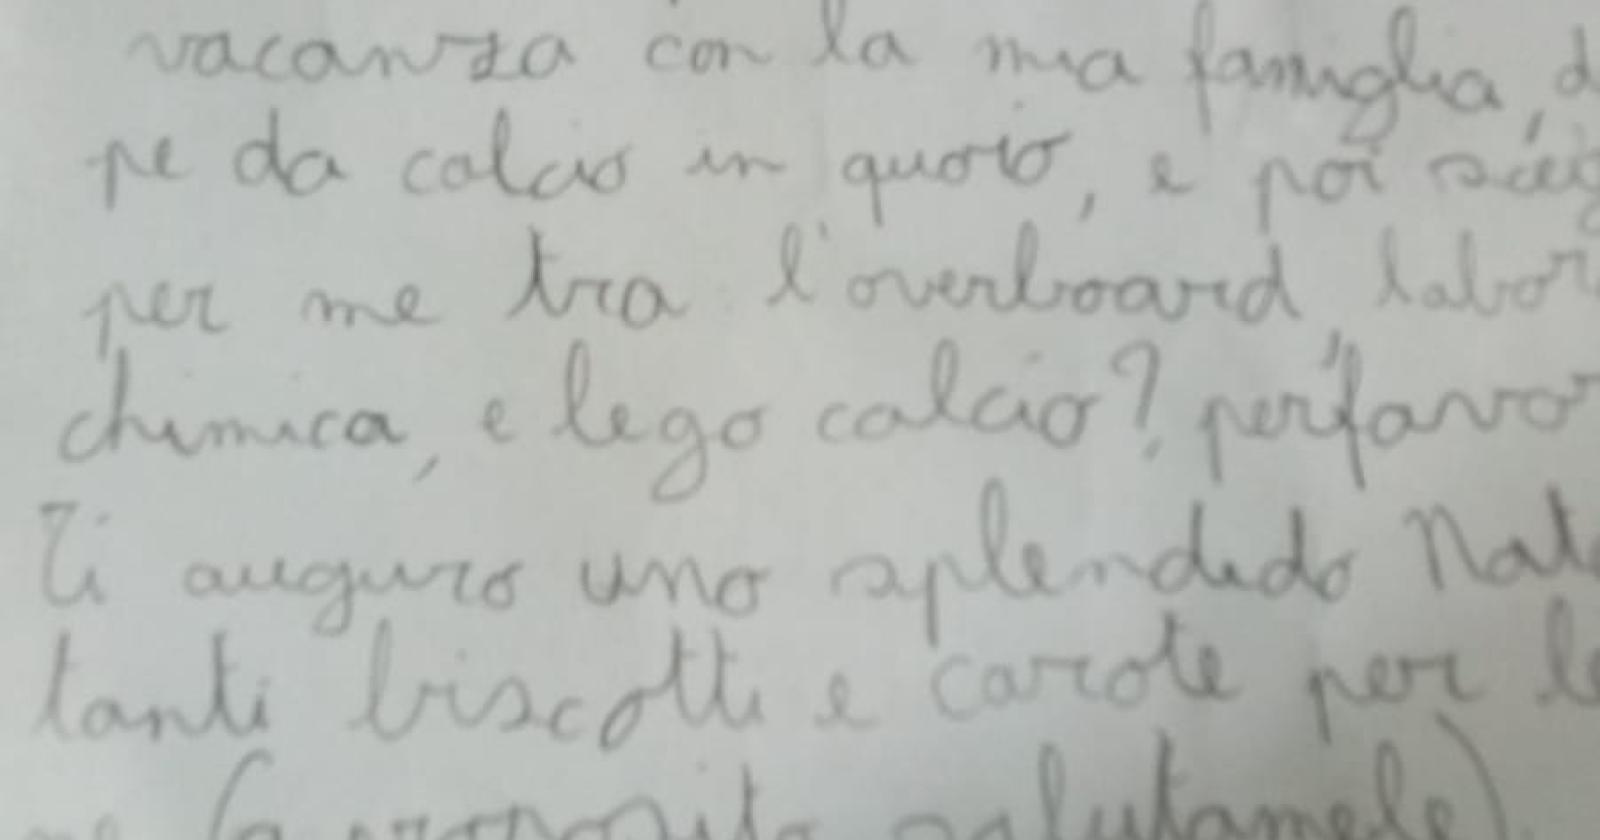 vacanza con la mia famiglia, d
pe da calcio in quoio, e poi sceg
per me tra l'overboard, labor
chimica, e lego calcio? perfavor
Ti auguro uno splendido Nata
tanti biscotti e carote per le
(a proposito salutamele)